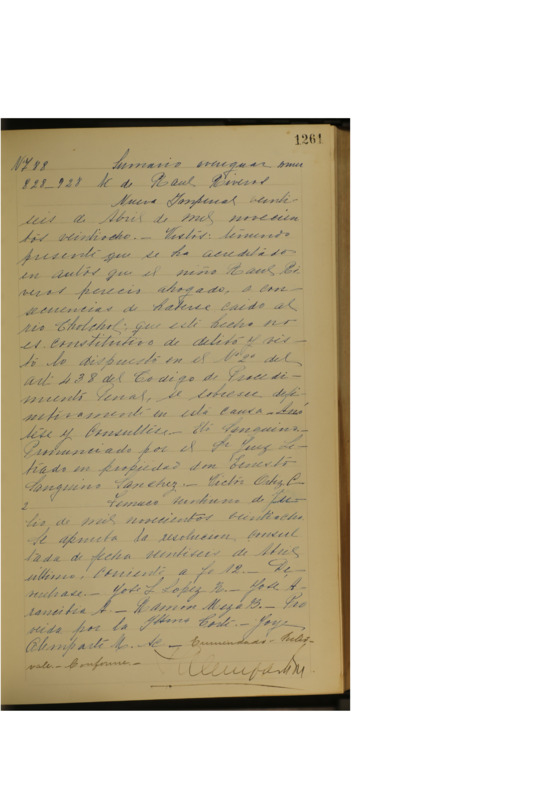 1261
Nº 788 Sumario averiguar muer
828-928 te de Raul Riveros
Nueva Imperial veinti
seis de Abril de mil novecien
tos veintiocho.- Vistos: teniendo
presente que se ha acreditado
en autos que el niño Raul Ri
veros pereció ahogado, a con
secuencias de haberse caido al
rio Cholchol; que este hecho no
es constitutivo de delito y vis-
to lo dispuesto en el Nº 2º del
art 438 del Codigo de Procedi-
miento Penal, se sobresee defi
nitivamente en esta causa.- Anó
tese y Consúltese.- E. Sanguino.-
Pronunciado por el Sr Juez Le-
trado en propiedad don Ernesto
Sanguino Sanchez.- Victor Ortiz C.-
2 Temuco veintiuno de Ju
de mil novecientos veintiocho
Se aprueba la resolucion consul
tada de fecha veintiseis de Abril
ultimo, corriente a fs 12.- De-
vuelvase.- José L Lopez R.- José A-
rancibia A.- Ramón Meza B.- Pro
veida por la Iltma Corte.- Jorje
Olemparte M.- Enmendado-
vale- Conforme-